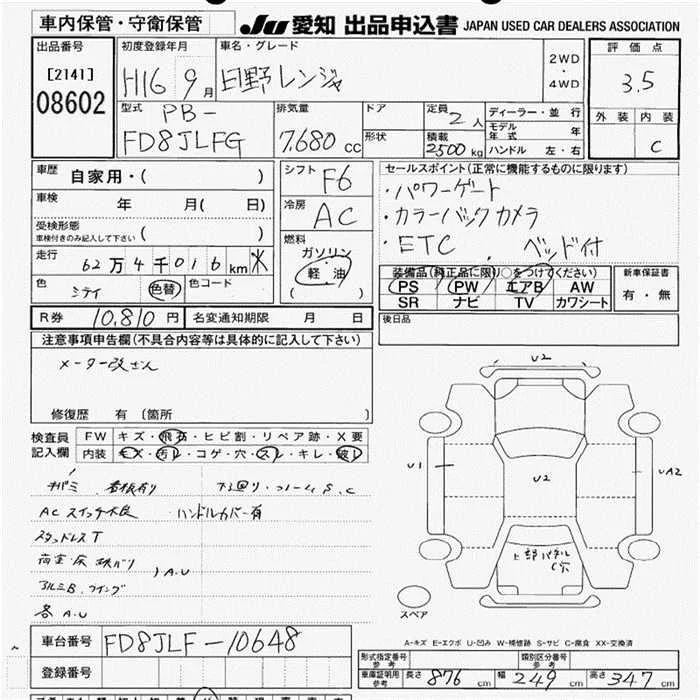 車内保管・守衛保管 JU 愛知 出品申込書 JAPAN USED CAR DEALERS ASSOCIATION
出品番号 [2141] 08602
初度登録年月 H16 9月
車名・グレード 日野レンジャ
2WD・4WD
評価点 3.5
外装 内装 C
型式 PB-FD8JLFG
排気量 7.680 cc
ドア
形状
定員 2人
積載 2500 kg
ディーラー・並行
モデル年式 年
ハンドル 左・右
車歴 自家用・( )
車検 年 月( 日)
受検形態
車検付きのみ記入して下さい ( )
走行 62万4千016km
色 シテイ 色替 色コード
シフト F6
冷房 AC
燃料 ガソリン・軽油 ( )
セールスポイント(正常に機能するものに限ります)
・パワーゲート
・カラーバックカメラ
・ETC ・ベッド付
装備品(純正品に限り○をつけてください)
PS PW エアB AW
SR ナビ TV カワシート
新車保証書 有・無
R券 10,810円 名変通知期限 月 日
後日品
注意事項申告欄(不具合内容等は具体的に記入して下さい)
メーター改ざん
修復歴 有 〔箇所 〕
検査員記入欄
FW キズ・飛石・ヒビ割・リペア跡・X要
内装 キズ・汚レ・コゲ・穴・スレ・キレ・破レ
看板有り 下廻り・フレームS.C
ACスイッチ不良 ハンドルカバー有
スタッドレスT
A.U
アルミB.ウイング
各A.U
U2
U1
U2
UA2
上部パネルC穴
スペア
A-キズ E-エクボ U-凹み W-補修跡 S-サビ C-腐食 XX-交換済
車台番号 FD8JLF-10648
登録番号
形式指定番号 参考
類別区分番号 参考
車庫証明用 参考 長さ 876 cm 幅 249 cm 高さ 347 cm